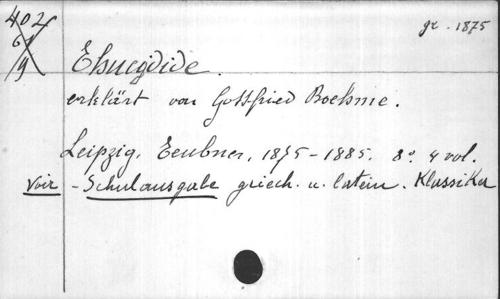 402
61
9
gr. 1875
Thucydide.
erklärt von Gottfried Boehme.
Leipzig, Teubner, 1875-1885. 8° 4 vol.
Voir - Schulausgabe griech. u. latein. Klassiker